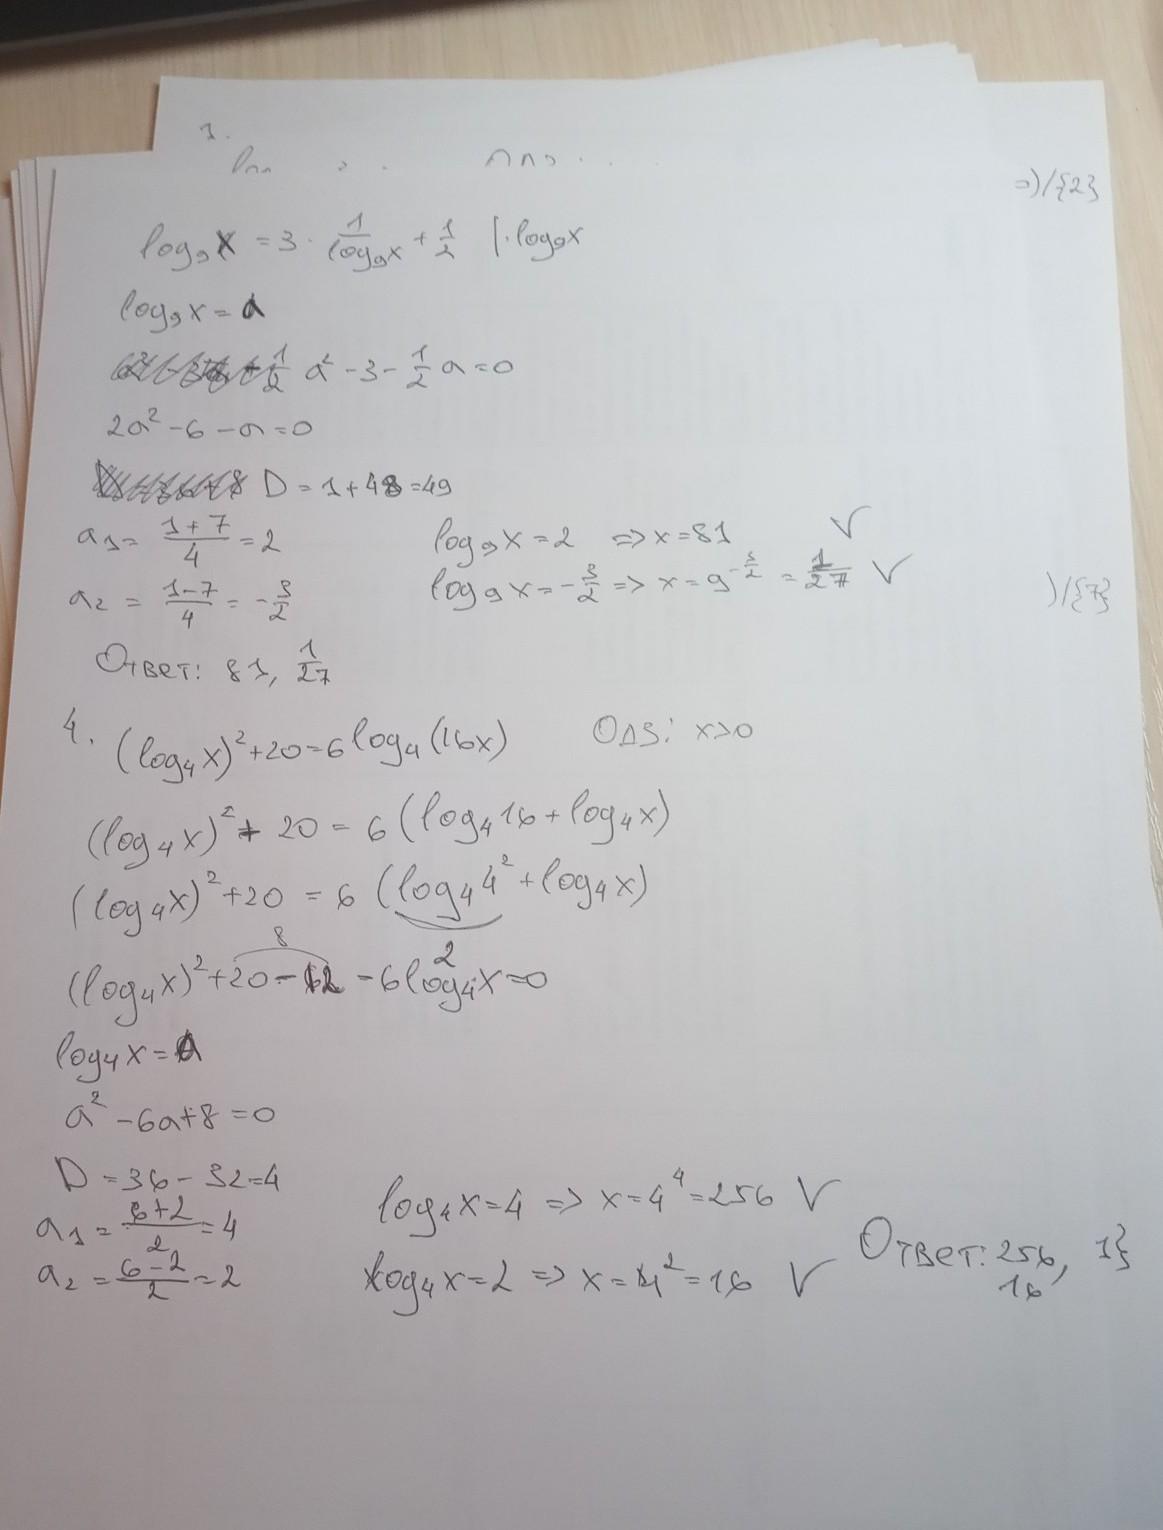 1.
⇒)/{2}
log₉x = 3 · 1/log₉x + 1/2 |· log₉x
log₉x = a
a² - 3 - 1/2 a = 0
2a² - 6 - a = 0
D = 1 + 48 = 49
a₁ = (1+7)/4 = 2 log₉x = 2 ⇒ x = 81 V
a₂ = (1-7)/4 = -3/2 log₉x = -3/2 ⇒ x = 9^(-3/2) = 1/27 V
)/{7}
Ответ: 81, 1/27
4. (log₄x)² + 20 = 6 log₄(16x) ОДЗ: x>0
(log₄x)² + 20 = 6 (log₄16 + log₄x)
(log₄x)² + 20 = 6 (log₄4² + log₄x)
8 2
(log₄x)² + 20 - 12 - 6log₄x = 0
log₄x = a
a² - 6a + 8 = 0
D = 36 - 32 = 4
a₁ = (6+2)/2 = 4 log₄x = 4 ⇒ x = 4⁴ = 256 V
a₂ = (6-2)/2 = 2 log₄x = 2 ⇒ x = 4² = 16 V
Ответ: 256, 1}
16